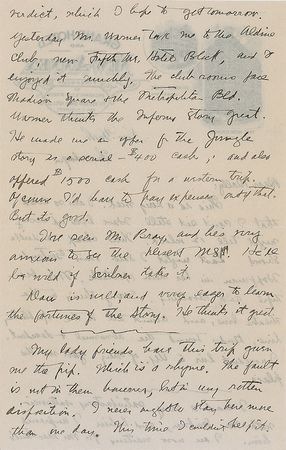 verdict, which I hope to get tomorrow.
Yesterday Mr. Warner took me to the Aldine
Club, new Fifth Av. Hotel Block, and I
enjoyed it muchly. The club rooms face
Madison Square & the Metropolitan Bld.
Warner thinks the Inferno Story great.
He made me an offer for the Jungle
story as a serial — $400 cash, and also
offered $1500 cash for a western trip.
Of course I'd have to pay expenses out of that.
But its good.
I've seen Mr. Bray and he's very
anxious to see the Desert MSS. He'll
be wild if Scribner takes it.
Dan is well, and very eager to learn
the fortunes of the Story. He thinks it great
My lady friends have this trip given
me the pip. Which is a rhyme. The fault
is not in them however, but in my rotten
disposition. I never ought to stay here more
than one day. This time I couldn't help it.